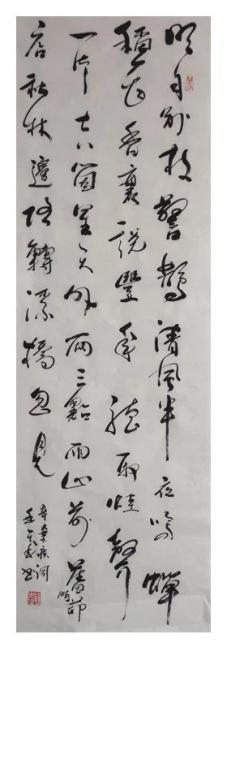 明月别枝驚鵲清風半夜鳴蟬
稻花香裏説豐年聽取蛙聲
一片七八箇星天外兩三點雨山前舊時茆
店社林邊路轉溪橋忽見
辛棄疾詞